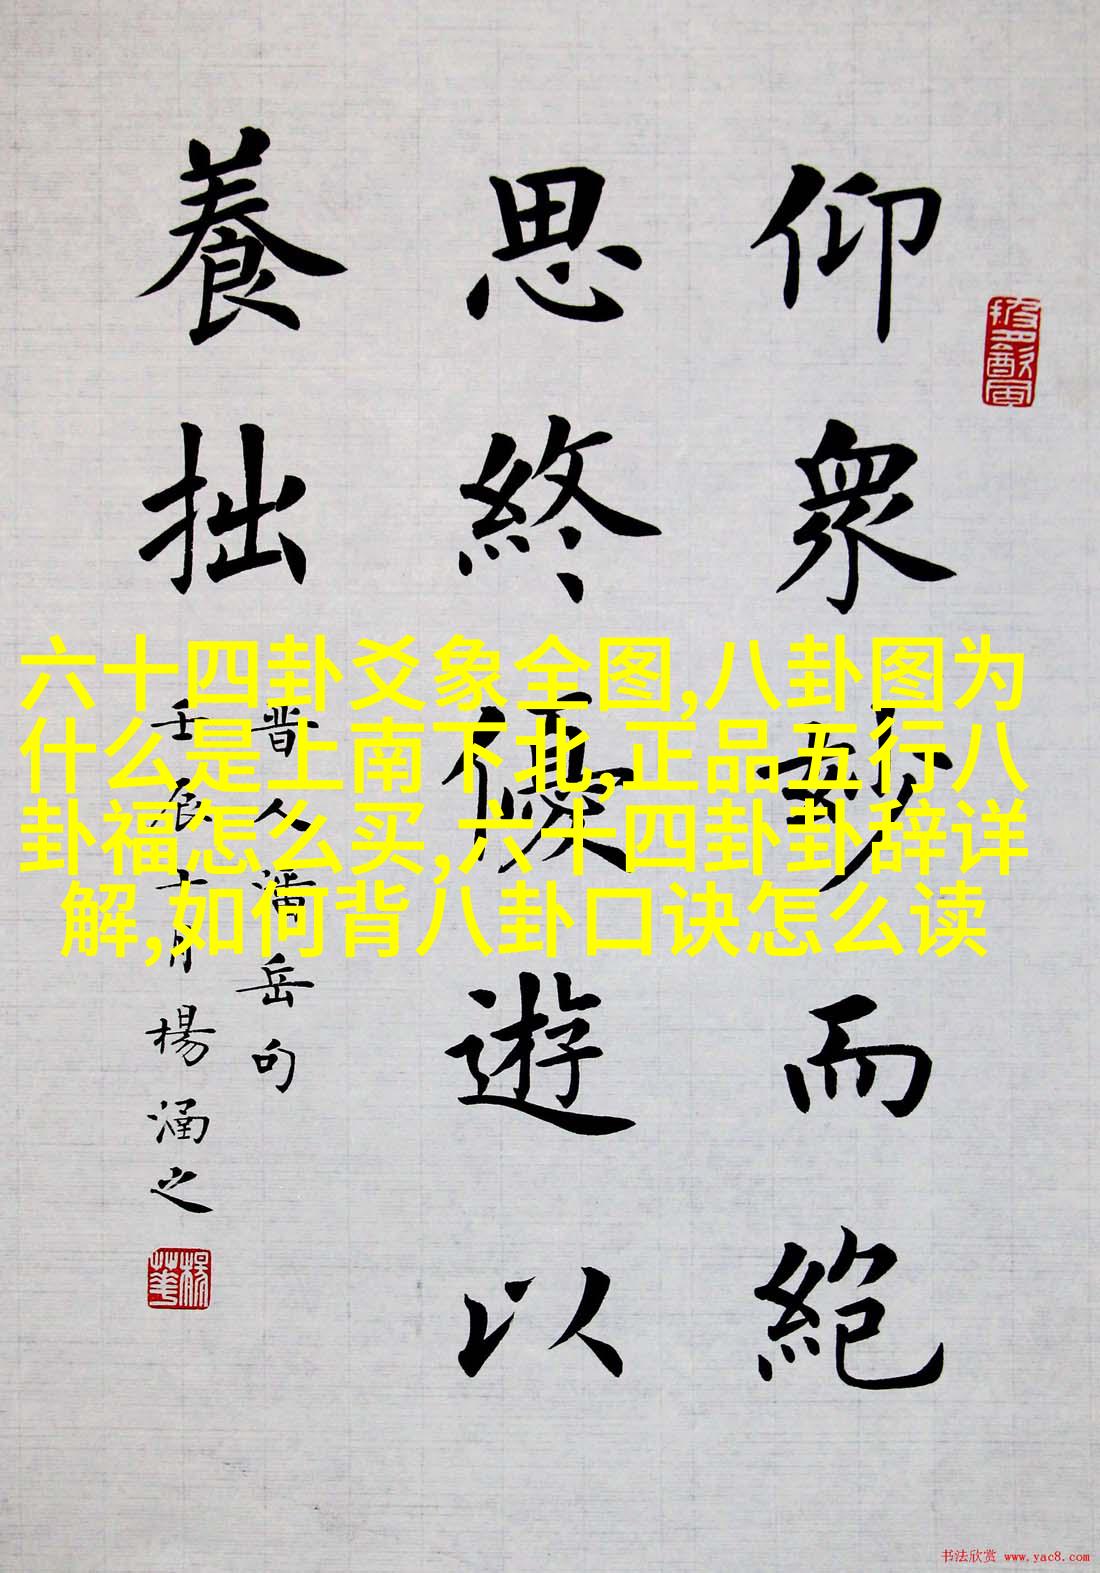 仰眾妙而絕
思終優遊以
養拙
晋人潘岳句
壬辰十月楊涵之
六十四卦爻象全图,八卦图为
什么是上南下北,正品五行八
卦福怎么买,六十四卦卦辞详
解,如何背八卦口诀怎么读
书法欣赏 www.yac8.com